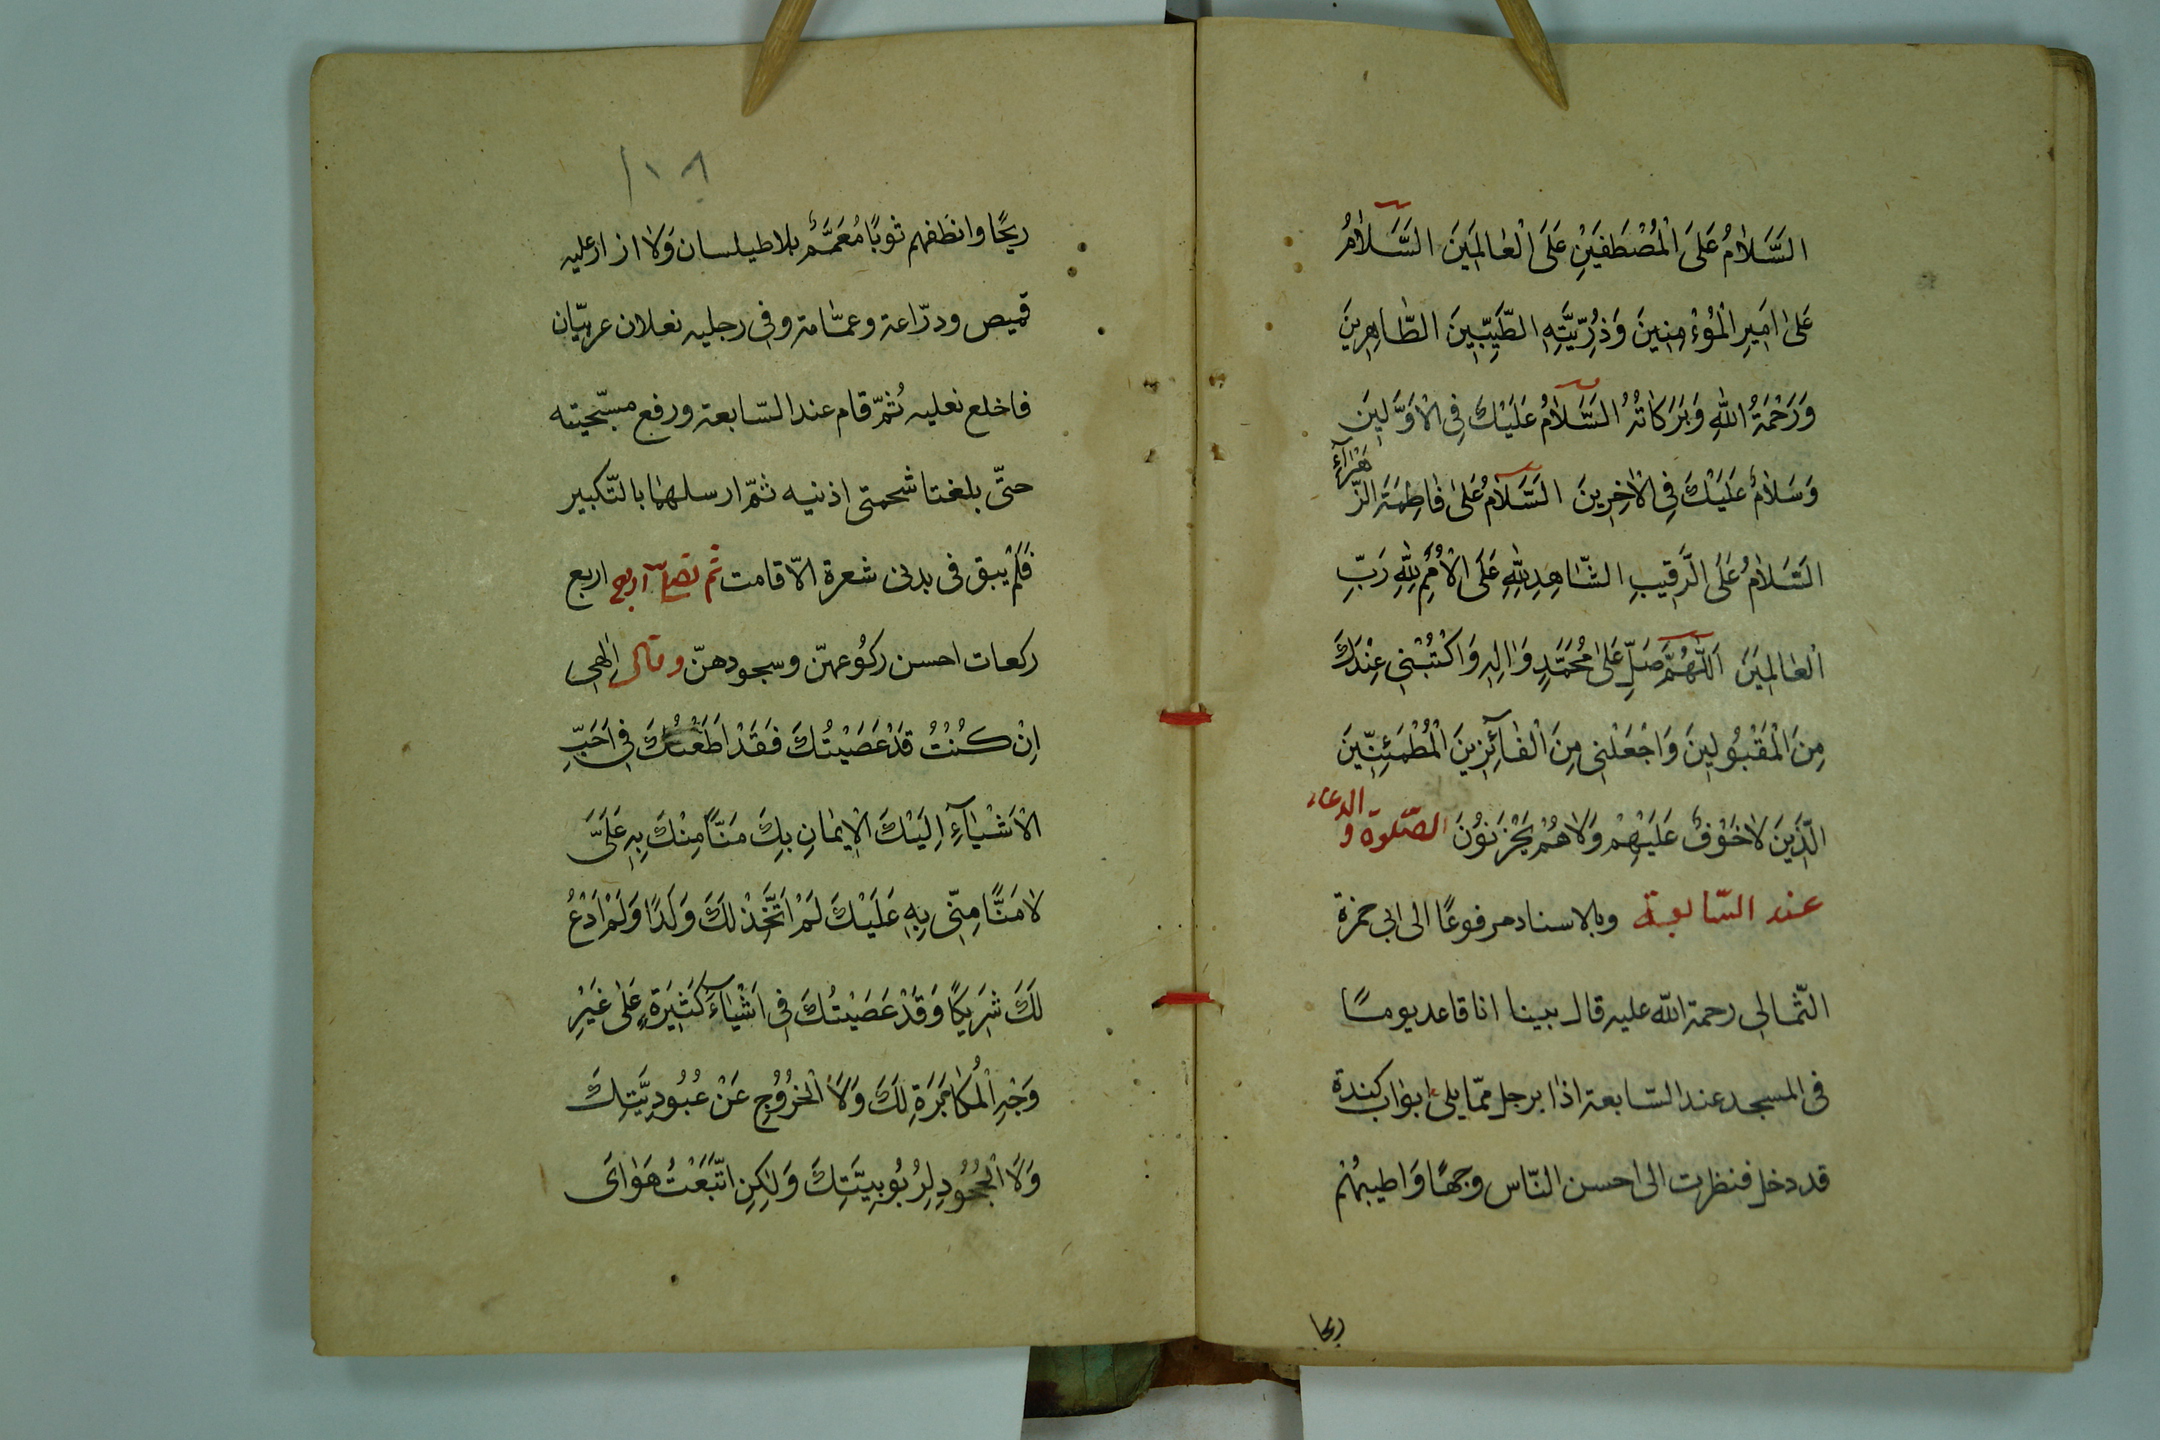 السَّلَامُ عَلَى الْمُصْطَفَيْنَ عَلَى الْعَالَمِينَ السَّلَامُ
عَلَىٰ اَمِيرِ الْمُؤْمِنِينَ وَذُرِّيَّتِهِ الطَّيِّبِينَ الطَّاهِرِينَ
وَرَحْمَةُ اللهِ وَبَرَكَاتُهُ السَّلَامُ عَلَيْكَ فِي الْاَوَّلِينَ
وَسَلَامٌ عَلَيْكَ فِي الْاٰخِرِينَ السَّلَامُ عَلَىٰ فَاطِمَةَ الزَّهْرَآءِ
السَّلَامُ عَلَى الرَّقِيبِ الشَّاهِدِ لِلّٰهِ عَلَى الْاُمَمِ لِلّٰهِ رَبِّ
الْعَالَمِينَ اَللّٰهُمَّ صَلِّ عَلىٰ مُحَمَّدٍ وَاٰلِهِ وَاكْتُبْنِي عِنْدَكَ
مِنَ الْمَقْبُولِينَ وَاجْعَلْنِي مِنَ الْفَآئِزِينَ الْمُطْمَئِنِّينَ
الَّذِينَ لَا خَوْفٌ عَلَيْهِمْ وَلَا هُمْ يَحْزَنُونَ الصّلوة والدعاء
عند السّابعة وبالاسناد مرفوعًا الى ابى حمزة
الثّمالى رحمة الله عليه قال بينا انا قاعد يومًا
فى المسجد عند السّابعة اذا برجل ممّا يلى ابواب كندة
قد دخل فنظرت الى احسن النّاس وجهًا وَاطيبهُمْ
ريحا
١٠٨
ريحًا وانظفهم ثوبًا مُعَمَّمٌ بلا طيلسان وَلا ازار عليه
قميص ودرّاعة وعمّامة وفى رجليه نعلان عربيّان
فاخلع نعليه ثُمّ قام عند السّابعة ورفع مسبّحيته
حتّى بلغتا شحمتى اذنيه ثمّ ارسلهما بالتّكبير
فَلَمْ يبق فى بدنى شعرة الّا قامت ثم صلى اربع اربع
ركعات احسن ركُوعهنّ وسجودهنّ وقال اِلٰهِى
اِنْ كُنْتُ قَدْ عَصَيْتُكَ فَقَدْ اَطَعْتُكَ فِي اَحَبِّ
الْاَشْيَآءِ اِلَيْكَ الْاِيمَانِ بِكَ مَنًّا مِنْكَ بِهِ عَلَيَّ
لَا مَنًّا مِنِّى بِهِ عَلَيْكَ لَمْ اَتَّخِذْ لَكَ وَلَدًا وَلَمْ اَدْعُ
لَكَ شَرِيكًا وَقَدْ عَصَيْتُكَ فِى اَشْيَآءَ كَثِيرَةٍ عَلَى غَيْرِ
وَجْهِ الْمُكَابَرَةِ لَكَ وَلَا الْخُرُوجِ عَنْ عُبُودِيَّتِكَ
وَلَا الْجُحُودِ لِرُبُوبِيَّتِكَ وَلَكِنِ اتَّبَعْتُ هَوَاىَ